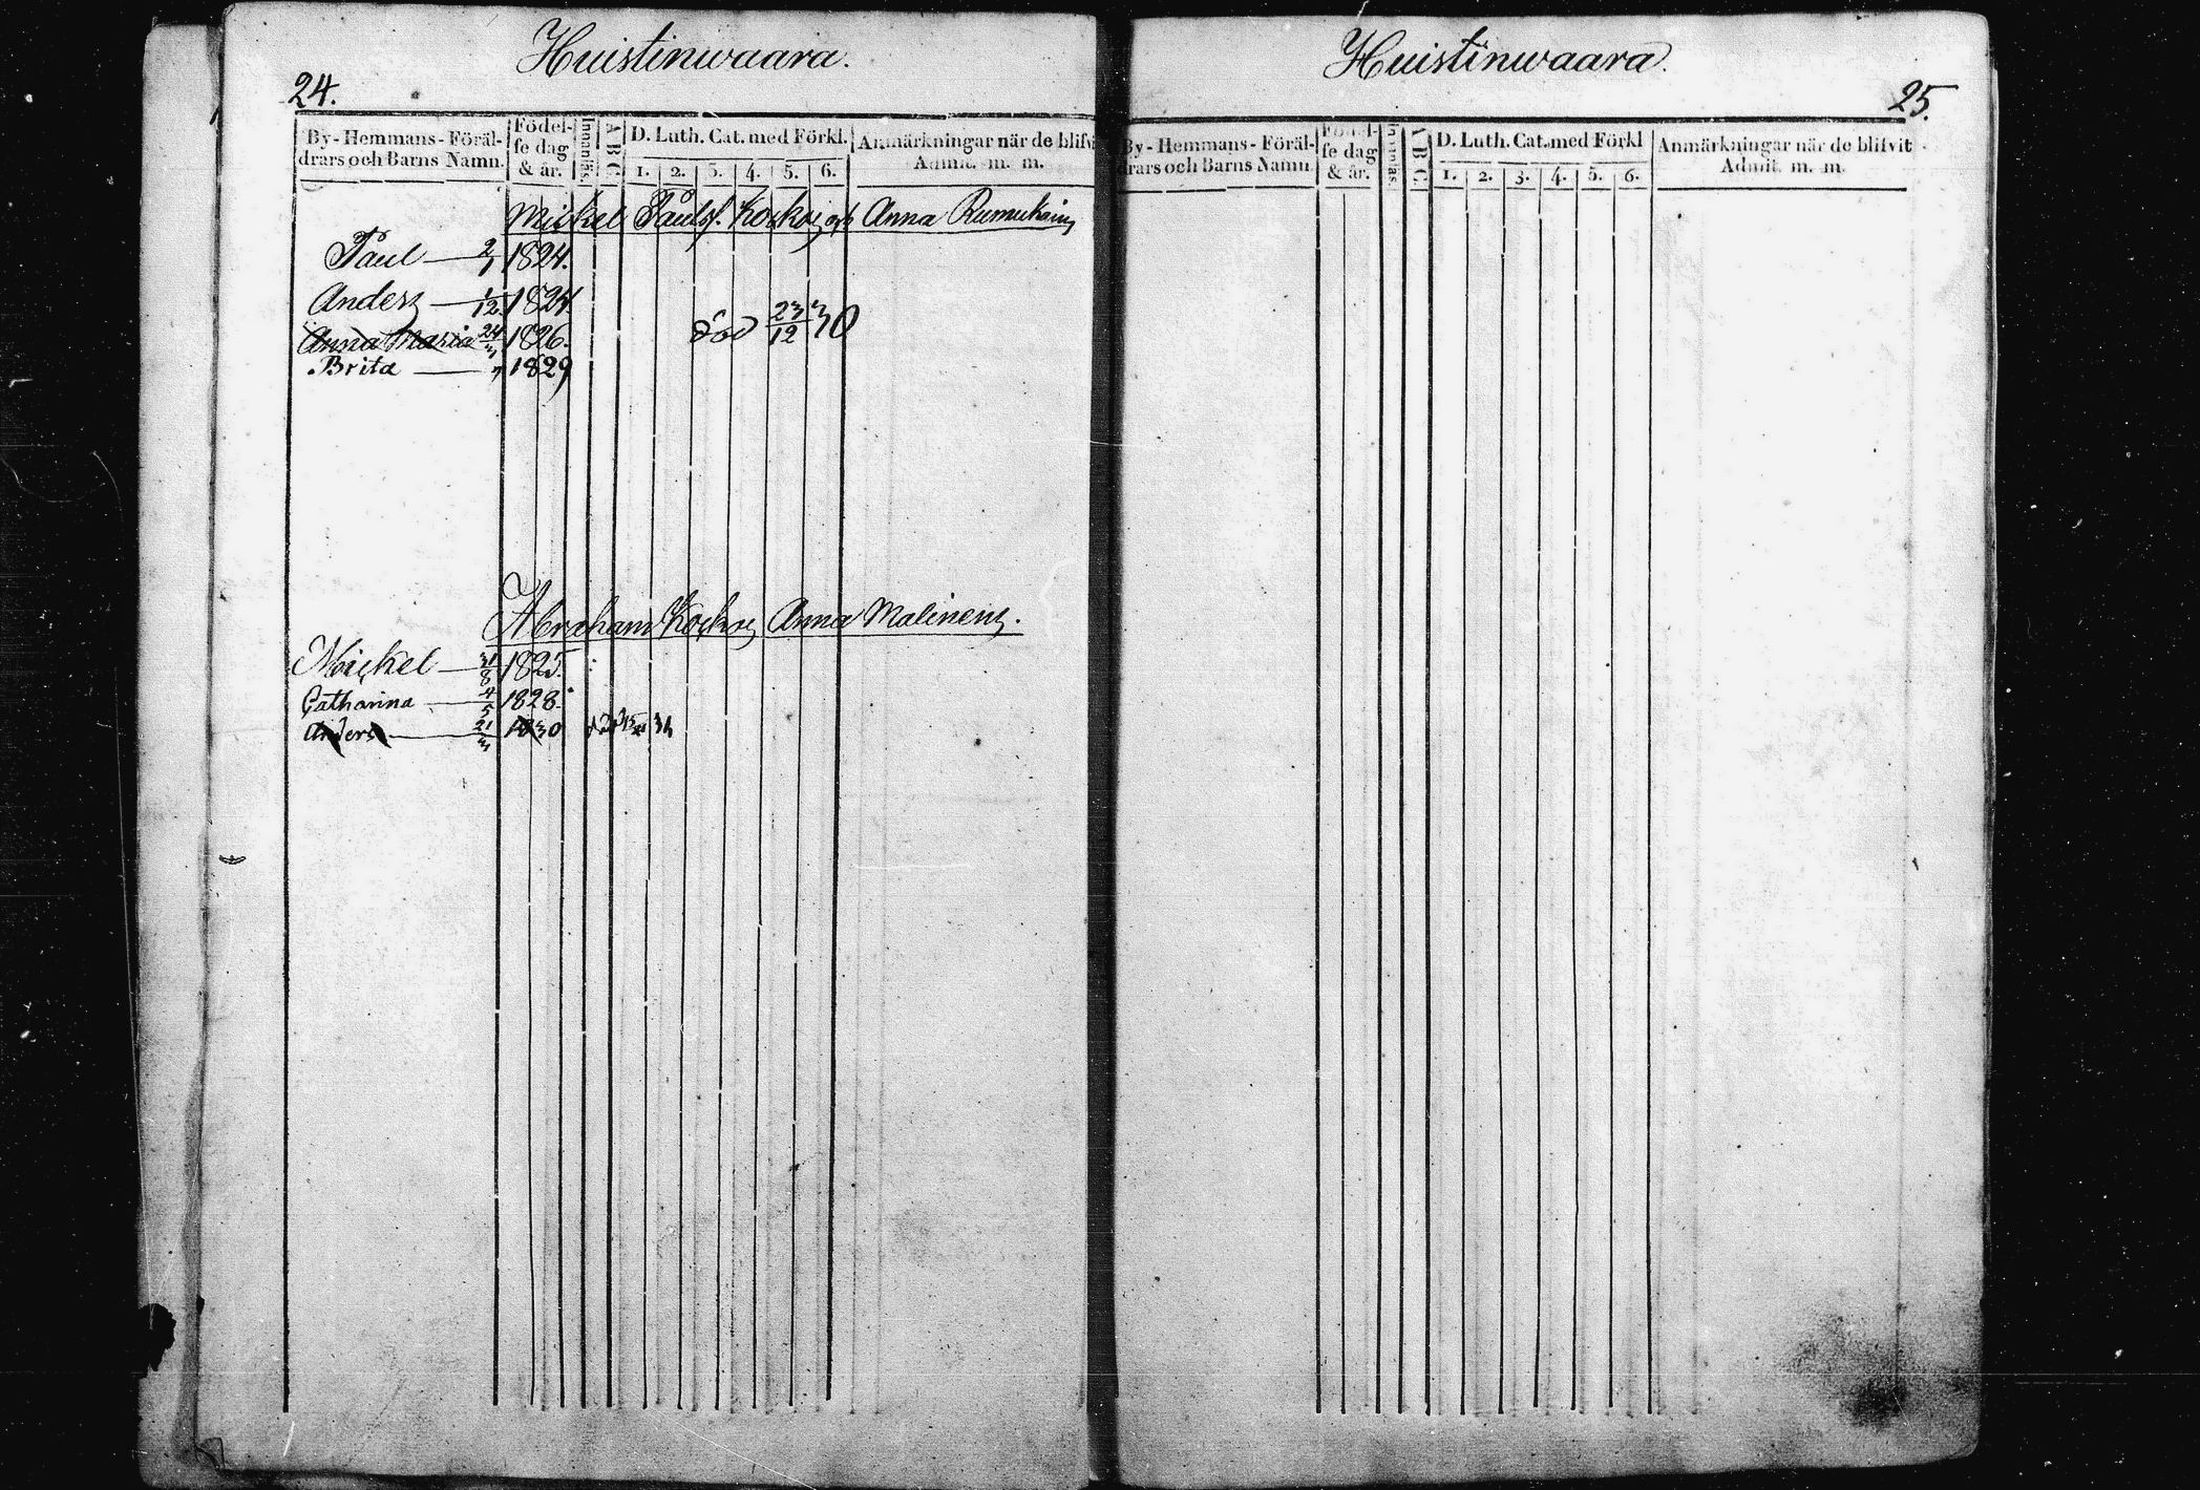 Huistinwaara.
24.
By-Hemmans-Föräl-
drars och Barns Namn.
Födel-
se dag
& år.
Innanläs.
A B C
D. Luth. Cat. med Förkl.
1. 2. 3. 4. 5. 6.
Anmärkningar när de blifvi
Admit. m. m.
Mickel Paulsf. Koskoi och Anna Rumukain
Paul — 2/7 1824.
Anders — 1/12 1824
Anna Maria 24/3 1826. död 23/12 30
Brita — 1829
Abraham Koskoi Anna Malinen.
Mickel — 31/8 1825.
Catharina — 4/5 1828.
Anders — 21/3 1830
Huistinwaara.
25.
By-Hemmans-Föräl-
drars och Barns Namn.
Födel-
se dag
& år.
Innanläs.
A B C
D. Luth. Cat. med Förkl
1. 2. 3. 4. 5. 6.
Anmärkningar när de blifvit
Admit. m. m.